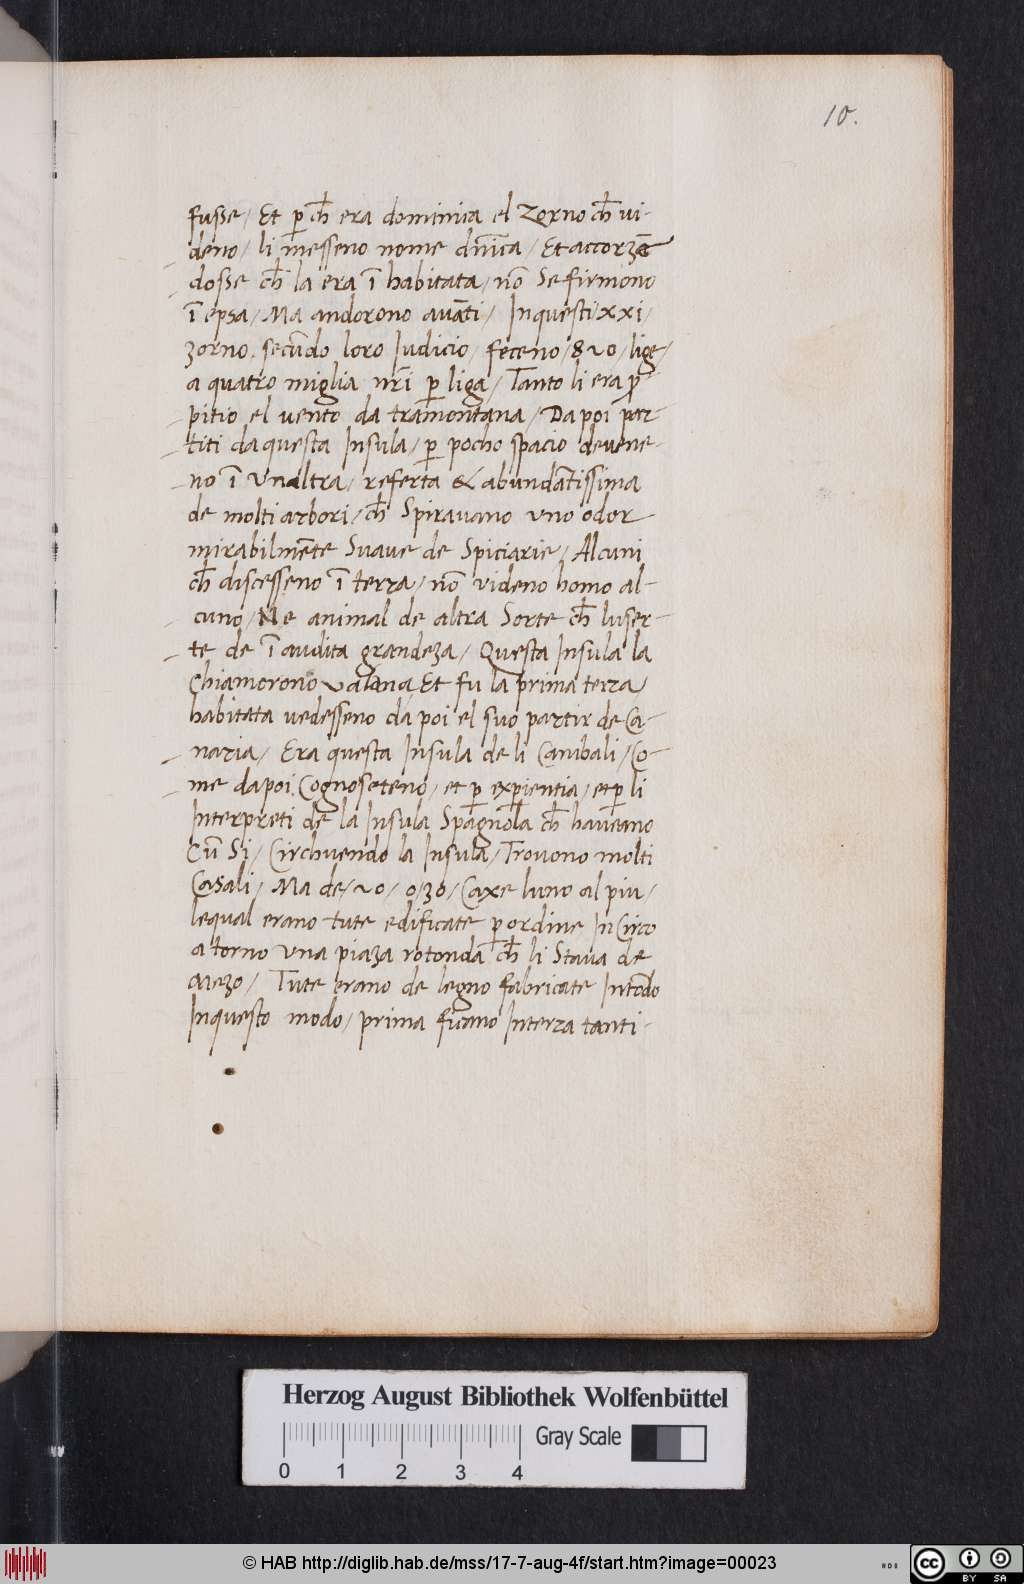 10.
fusse / Et p̱ ch̄ era dominica el Zorno ch̄ vi-
deno / li messeno nome dn̄ica / Et accorzē
dosse ch̄ la era ī habitata / nō Se firmono
ī epsa / Ma andorono auāti / Inquesti / xxi /
zorno. secūdo loro Iudicio / feceno / 820 / lige /
a quatro miglia nr̄i p̱ liga / Tanto li era pro-
pitio el vento da tramontana / Da poi par-
titi da questa Insula / p̱ pocho spacio devene-
no ī Vnaltra / referta & abundātissima
de molti arbori / ch̄ Spiravano vno odor
mirabilmēte Suaue de Spiciarie / Alcuni
ch̄ discesseno ī terra / nō videno homo al-
cuno / Ne animal de altra Sorte ch̄ luser-
te de ī audita grandeza / Questa Insula la
Chiamorono Et fu la prima terra
habitata uedesseno da poi el suo partir de Ca-
naria / Era questa Insula de li Canibali / Co-
me dapoi Cognosceteno / et p̱ exp̱ientia / et p̱ li
Interpreti de la Insula Spagnola ch̄ haueano
Cū Si / Circhuendo la Insula / Trouono molti
Casali / Ma de / 20 / o / 30 / Caxe luno al piu /
lequal erano tute edificate p̱ ordine In Circo
a torno vna piaza rotonda ch̄ li Staua de
mezo / Tute erano de legno fabricate Intōdo
Inquesto modo / prima ficano Interza tanti-
Herzog August Bibliothek Wolfenbüttel
Gray Scale
0 1 2 3 4
© HAB http://diglib.hab.de/mss/17-7-aug-4f/start.htm?image=00023
cc BY SA